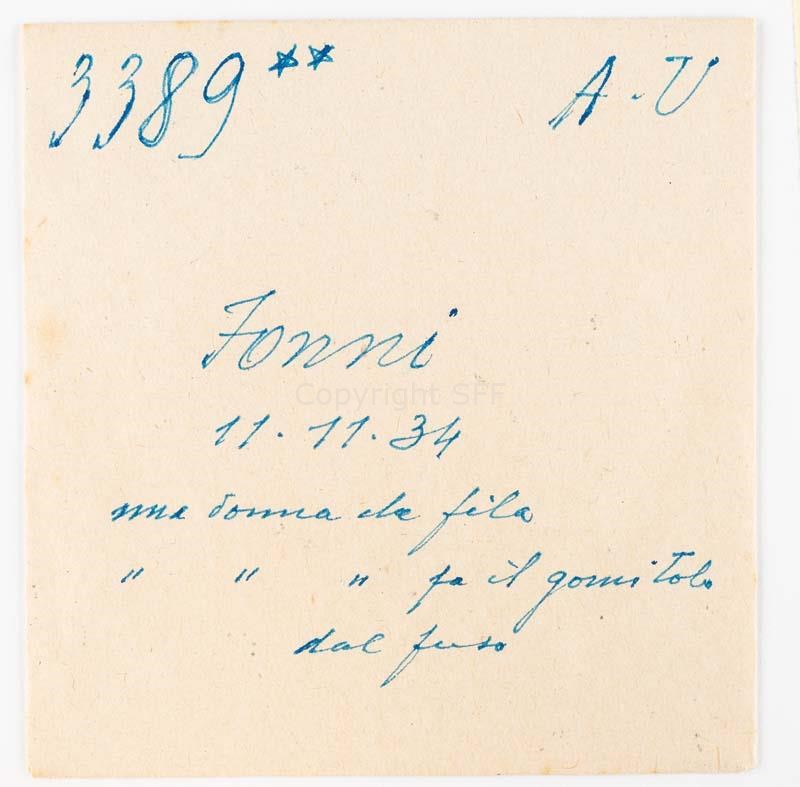 3389 ** A - V
Fonni
Copyright SFF
11. 11. 34
una donna che fila
" " " fa il gomitolo
dal fuso